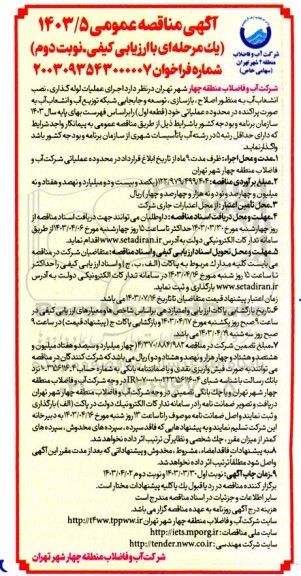 آگهی مناقصه عمومی ۱۴۰۳/۵
(یک مرحله‌ای با ارزیابی کیفی ـ نوبت دوم)
شماره فراخوان ۲۰۰۳۰۹۳۵۴۳۰۰۰۰۰۷
شرکت آب و فاضلاب
منطقه ۴ شهر تهران
(سهامی خاص)
شرکت آب و فاضلاب منطقه چهار شهر تهران در نظر دارد اجرای عملیات لوله گذاری، نصب
انشعاب آب به منظور اصلاح، بازسازی، توسعه و جابجایی شبکه توزیع آب و انشعاب آب به
صورت پراکنده در محدوده عملیاتی خود (قطعه اول) را براساس فهرست بهای پایه سال ۱۴۰۳
سازمان برنامه و بودجه کشور با شرایط ذیل از طریق مناقصه عمومی به پیمانکار واجد شرایط
که دارای حداقل رتبه ۵ در رشته آب یا تأسیسات شهری از سازمان برنامه و بودجه کشور باشد
واگذار نماید.
۱ـ مدت و محل اجراء: ظرف مدت ۹ ماه از تاریخ ابلاغ قرارداد در محدوده عملیاتی شرکت آب و
فاضلاب منطقه چهار شهر تهران
۲ـ مبلغ برآوردی مناقصه: (یکصد و بیست و دو میلیارد و نهصد و هفتاد و نه
میلیون و چهارصد و نود و نه هزار و چهارصد و چهار) ریال
۳ـ محل تأمین اعتبار: از محل اعتبارات جاری شرکت
۴ـ مهلت و محل دریافت اسناد مناقصه: داوطلبان می توانند جهت دریافت اسناد مناقصه از
روز چهارشنبه مورخ ۱۴۰۳/۰۳/۳۰ حداکثر تا ساعت ۱۵ روز چهارشنبه مورخ ۱۴۰۳/۰۴/۰۶ از طریق
سامانه تدارکات الکترونیکی دولت به آدرس www.setadiran.ir اقدام نمایند.
۵ـ مهلت و محل تحویل اسناد ارزیابی کیفی و اسناد مناقصه: متقاضیان شرکت در مناقصه
می بایست کلیه مدارک مربوط به پاکات (الف، ب، ج) و اسناد ارزیابی کیفی را حداکثر
تا ساعت ۱۵ روز شنبه مورخ ۱۴۰۳/۰۴/۱۶ در سامانه تدارکات الکترونیکی دولت به آدرس
www.setadiran.ir بارگذاری و ثبت نمایند.
زمان اعتبار پیشنهاد قیمت متقاضیان تا تاریخ ۱۴۰۳/۰۷/۱۶ می باشد.
۶ـ تاریخ بازگشایی پاکات ارزیابی کیفی و امتیازدهی براساس شاخص ها و معیارهای ارزیابی کیفی در
ساعت ۹ صبح روز یکشنبه مورخ ۱۴۰۳/۰۴/۱۷ و بازگشایی پاکات ج (پیشنهاد قیمت) در ساعت ۹
صبح روز سه شنبه ۱۴۰۳/۰۴/۱۹ می باشد.
۷ـ مبلغ تضمین شرکت در مناقصه (چهار میلیارد و سیصد و هفتاد میلیون و
هشتصد و هشتاد و چهار هزار و نهصد و هشتاد و دو) ریال می باشد که شرکت کنندگان در مناقصه
می توانند به صورت فیش واریزی نقدی و یا ضمانتنامه بانکی به شماره حساب
بانک رسالت با شناسه شبای در وجه شرکت آب و فاضلاب منطقه
چهار شهر تهران و یا چک بانکی تضمینی در وجه شرکت آب و فاضلاب منطقه چهار شهر تهران
دریافت و تصویر ضمانتنامه را در سامانه تدارکات الکترونیک دولت در پاکت (الف) بارگذاری
و ثبت نمایند و اصل ضمانتنامه موصوف را تا ساعت ۱۳ روز شنبه مورخ ۱۴۰۳/۰۴/۱۶ به دبیرخانه
این شرکت تسلیم نمایند و به پیشنهادهایی که فاقد سپرده، سپرده های مخدوش، سپرده های
کمتر از میزان مقرر، چک شخصی و نظایر آن ترتیب اثر داده نخواهد شد.
۸ـ به پیشنهادات فاقد امضاء، مشروط، مخدوش و پیشنهاداتی که بعد از مدت مقرر این آگهی
واصل شود مطلقاً ترتیب اثر داده نخواهد شد.
۹ـ زمان چاپ آگهی: نوبت اول ۱۴۰۳/۰۳/۳۰ و نوبت دوم ۱۴۰۳/۰۴/۰۲
برگزار کننده مناقصه در رد یا قبول یک یا کلیه پیشنهادات مختار است.
سایر اطلاعات و جزئیات در اسناد مناقصه مندرج است
هزینه درج آگهی روزنامه به عهده مناقصه گزار می باشد.
سایت شرکت آب و فاضلاب منطقه چهار شهر تهران http://t4ww.tppww.ir
سایت ملی مناقصات: http://iets.mporg.ir
سایت شرکت مهندسی: http://tender.nww.co.ir
شرکت آب و فاضلاب منطقه چهار شهر تهران